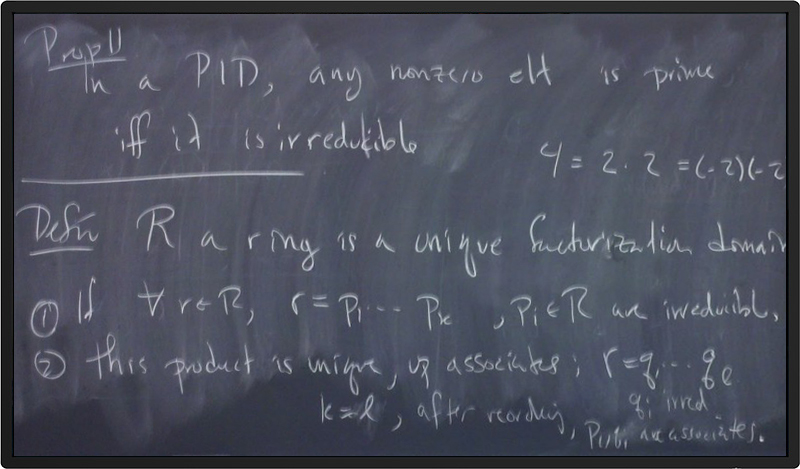 Prop 11
In a PID, any nonzero elt is prime
iff it is irreducible
4 = 2 · 2 = (-2)(-2
Defn R a ring is a unique factorization domain
① If ∀ r ∈ R, r = p₁ ⋯ pₖ , pᵢ ∈ R are irreducible,
② this product is unique, up associates; r = q₁ ⋯ qₗ
k = l , after reordering, qᵢ irred
pᵢ, qᵢ are associates.